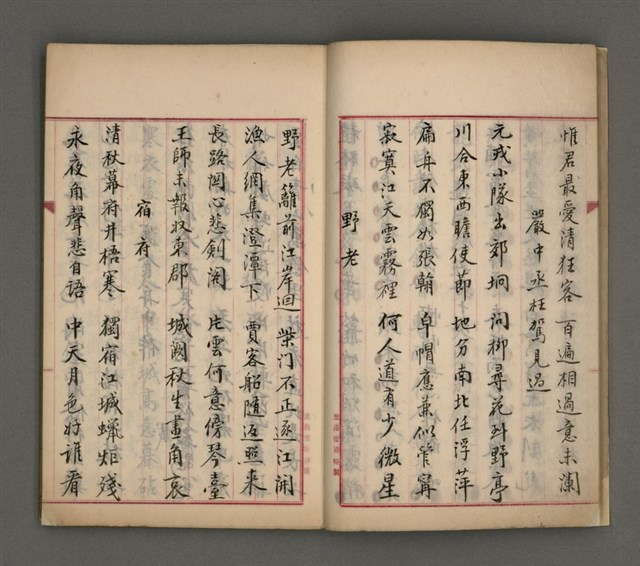 惟君最愛清狂客 百遍相過意未瀾
嚴中丞枉駕見過
元戎小隊出郊坰 问柳尋花到野亭
川合東西瞻使節 地分南北任浮萍
扁舟不獨如張翰 皁帽應兼似管寧
寂寞江天雲霧裡 何人道有少微星
野老
野老籬前江岸迴 柴门不正逐江開
漁人網集澄潭下 賈客船隨返照来
長路関心悲劍閣 片雲何意傍琴臺
王師未報収東郡 城闕秋生畫角哀
宿府
清秋幕府井梧寒 獨宿江城蠟炬殘
永夜角聲悲自語 中天月色好誰看